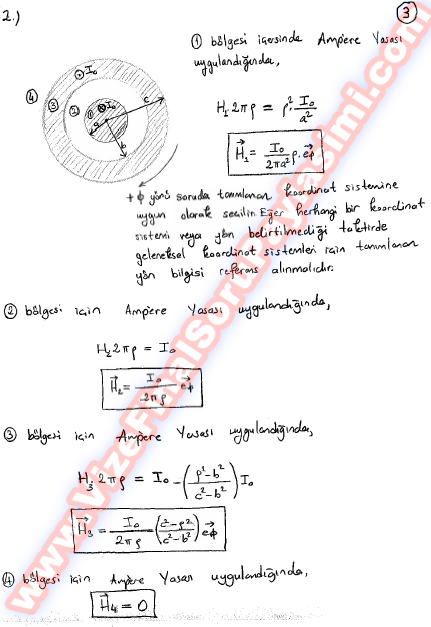 2.)
3
① bölgesi içersinde Ampere Yasası
uygulandığında,
H₁ 2πρ = ρ² · I₀/a²
H⃗₁ = I₀/2πa² ρ · e⃗ϕ
I₀
I₀
④ ③ ② ①
a b c
+ϕ yönü soruda tanımlanan koordinat sistemine
uygun olarak seçilir. Eğer herhangi bir koordinat
sistemi veya yön belirtilmediği taktirde
geleneksel koordinat sistemleri için tanımlanan
yön bilgisi referans alınmalıdır.
② bölgesi için Ampere Yasası uygulandığında,
H₂ 2πρ = I₀
H⃗₂ = I₀/2πρ e⃗ϕ
③ bölgesi için Ampere Yasası uygulandığında,
H₃ 2πρ = I₀ - (ρ²-b²/c²-b²) I₀
H⃗₃ = I₀/2πρ (c²-ρ²/c²-b²) e⃗ϕ
④ bölgesi için Ampere Yasası uygulandığında,
H⃗₄ = 0
www.VizeFinalSoruPaylasimi.com